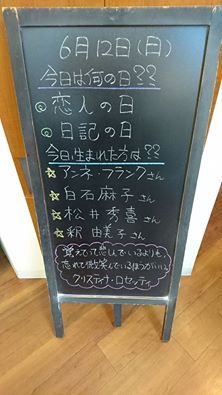 6月12日(日)
今日は何の日??
◎恋人の日
◎日記の日
今日、生まれた方は??
☆アンネ・フランクさん
☆白石麻子さん
☆松井秀喜さん
☆釈由美子さん
覚えていて悲しんでいるよりも、
忘れて微笑んでいるほうがいい
クリスティナ・ロセッティ